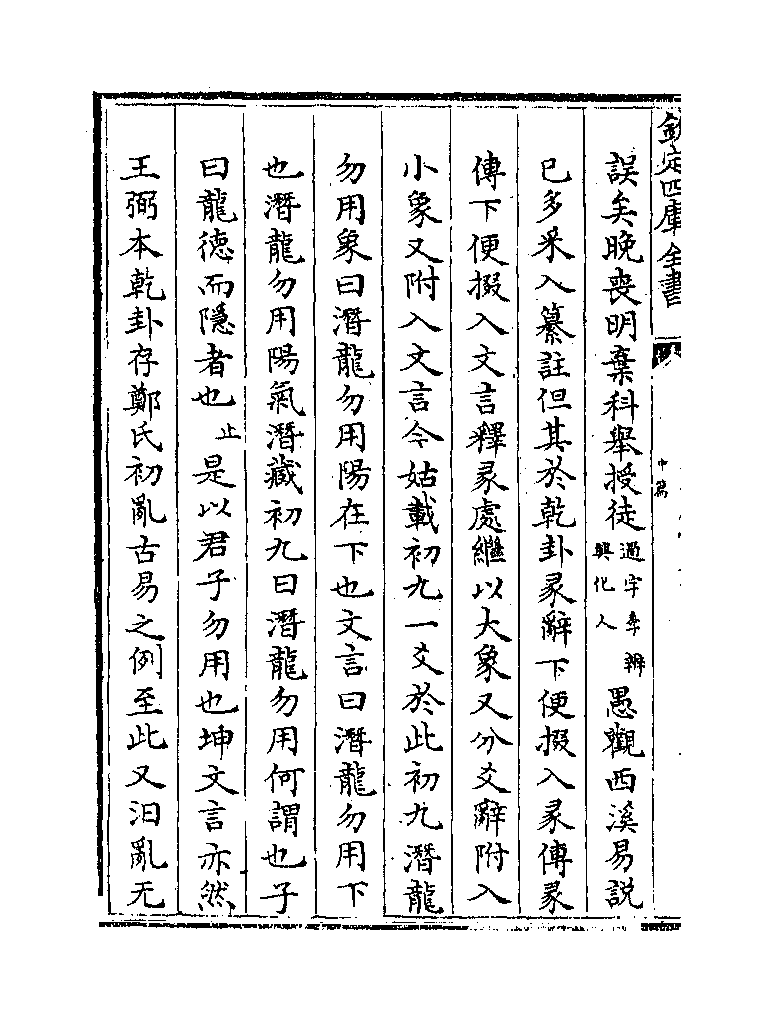 欽定四庫全書
中篇
誤矣晚喪明棄科舉授徒過字季辨興化人愚觀西溪易説
已多采入纂註但其於乾卦彖辭下便掇入彖傳彖
傳下便掇入文言釋彖處繼以大象又分爻辭附入
小象又附入文言今姑載初九一爻於此初九潛龍
勿用象曰潛龍勿用陽在下也文言曰潛龍勿用下
也潛龍勿用陽氣潛藏初九曰潛龍勿用何謂也子
曰龍德而隱者也止是以君子勿用也坤文言亦然
王弼本乾卦存鄭氏初亂古易之例至此又汩亂无